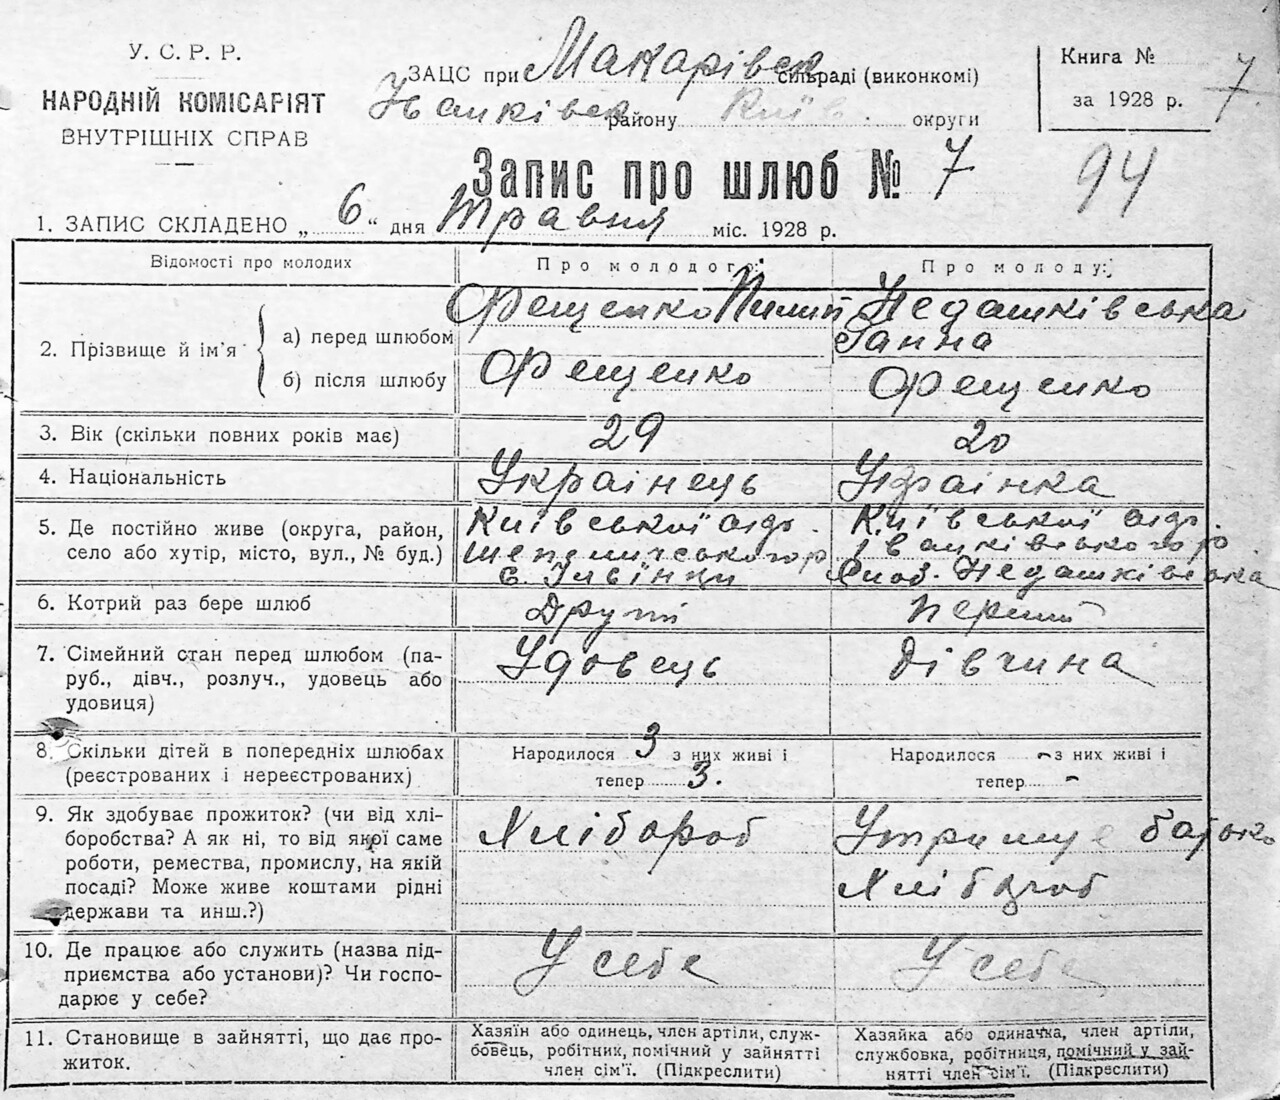 У. С. Р. Р.
НАРОДНІЙ КОМІСАРІЯТ
ВНУТРІШНІХ СПРАВ
ЗАЦС при Макарівск сільраді (виконкомі)
району Київ. округи
Книга № 7
за 1928 р.
Запис про шлюб № 7
94
1. ЗАПИС СКЛАДЕНО „ 6 “ дня травня міс. 1928 р.
Відомості про молодих
Про молодого:
Про молоду:
2. Прізвище й ім’я
а) перед шлюбом
Фещенко Пилип
Недашківська
Ганна
б) після шлюбу
Фещенко
Фещенко
3. Вік (скільки повних років має)
29
20
4. Національність
Українець
Українка
5. Де постійно живе (округа, район,
село або хутір, місто, вул., № буд.)
Київської окр.
Шепелическогор
с. Ільвінци
Київської окр.
Іванківського ро
Недашківська
6. Котрий раз бере шлюб
Другий
перший
7. Сімейний стан перед шлюбом (па-
руб., дівч., розлуч., удовець або
удовиця)
Удовець
Дівчина
8. Скільки дітей в попередніх шлюбах
(реєстрованих і нереєстрованих)
Народилося 3 з них живі і
тепер 3.
Народилося - з них живі і
тепер -
9. Як здобуває прожиток? (чи від хлі-
боробства? А як ні, то від якої саме
роботи, ремества, промислу, на якій
посаді? Може живе коштами рідні
держави та инш.?)
Хлібороб
Утримує батько
Хлібороб
10. Де працює або служить (назва під-
приємства або установи)? Чи госпо-
дарює у себе?
У себе
У себе
11. Становище в зайнятті, що дає про-
житок.
Хазяїн або одинець, член артіли, служ-
бовець, робітник, помічний у зайнятті
член сім’ї. (Підкреслити)
Хазяйка або одиначка, член артіли,
службовка, робітниця, помічний у зай-
нятті член сім’ї. (Підкреслити)